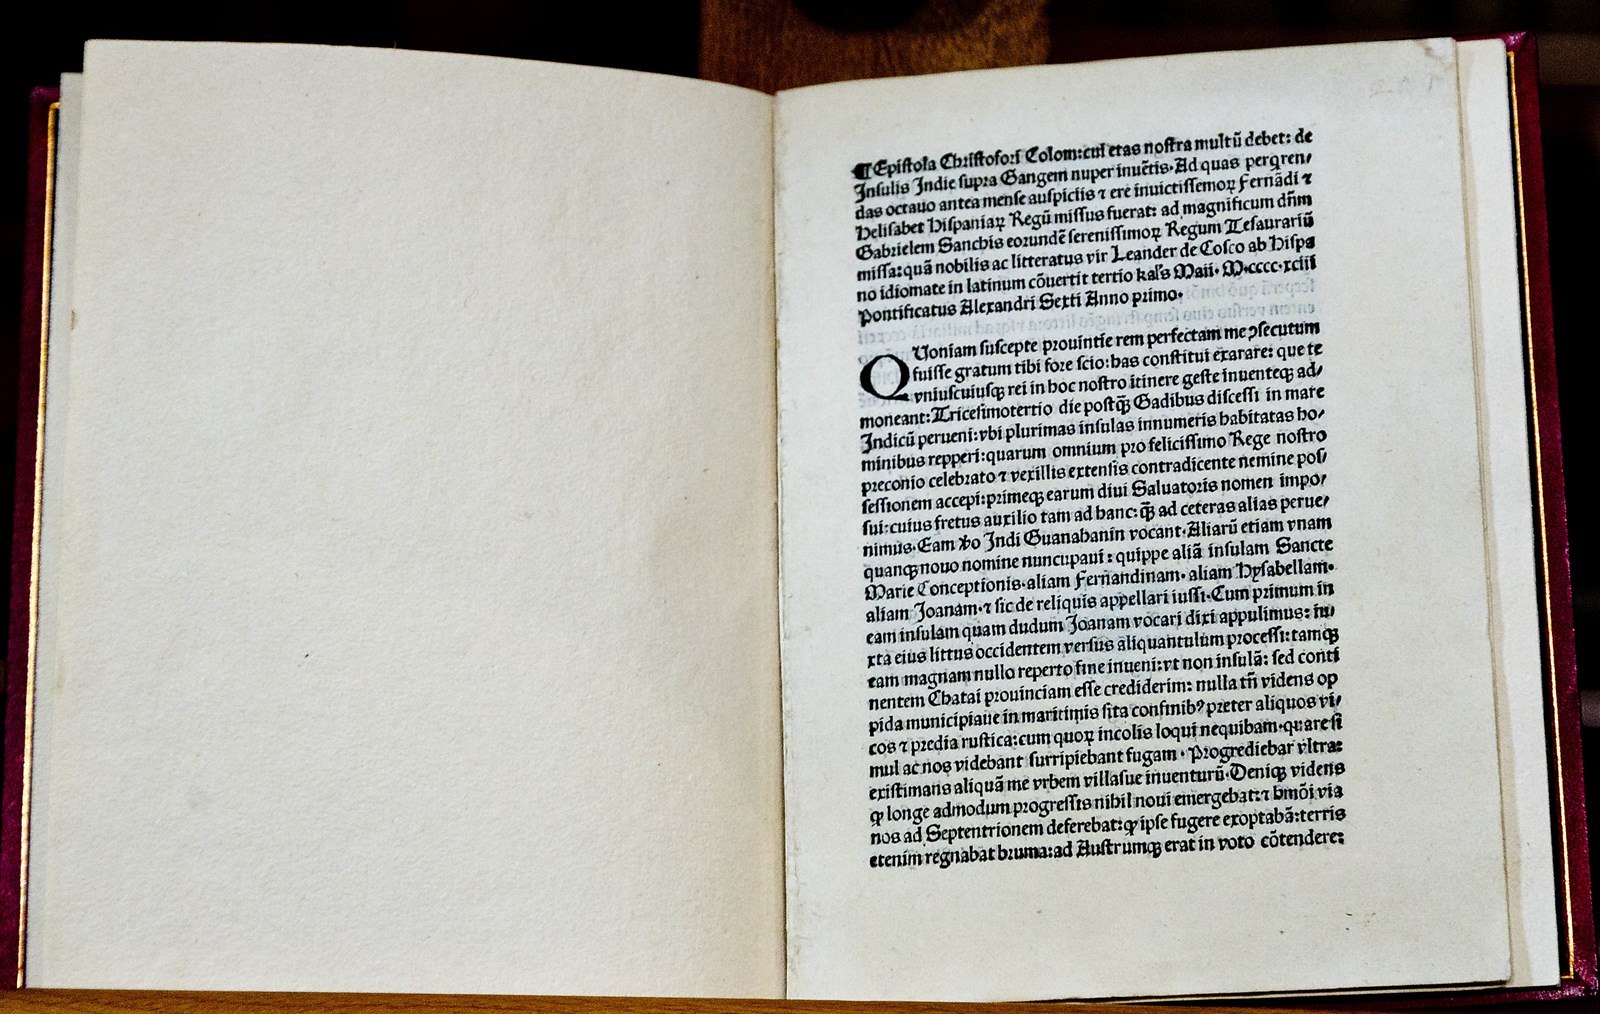 ¶Epiſtola Chriſtofori Colom:cui etas noſtra multū debet: de
Inſulis Indie ſupra Gangem nuper inuētis·Ad quas perqren⸗
das octauo antea menſe auſpiciis ⁊ ere inuictiſſemoꝝ Fernādi ⁊
Heliſabet Hiſpaniaꝝ Regū miſſus fuerat: ad magnificum dn̄m
Gabrielem Sanchis eorundē ſereniſſimoꝝ Regum Teſaurariū
miſſa:quā nobilis ac litteratus vir Leander de Coſco ab Hiſpa
no idiomate in latinum cōuertit tertio kaľs Maii· M·cccc·xciii
Pontificatus Alexandri Sexti Anno primo·
QUoniam ſuſcepte prouintie rem perfectam me ꝯſecutum
fuiſſe gratum tibi fore ſcio:has conſtitui exarare: que te
vniuſcuiuſqꝫ rei in hoc noſtro itinere geſte inuenteqꝫ ad⸗
moneant:Triceſimotertio die poſtqꝫ̄ Gadibus diſceſſi in mare
Indicū perueni:vbi plurimas inſulas innumeris habitatas ho⸗
minibus repperi:quarum omnium pro feliciſſimo Rege noſtro
preconio celebrato ⁊ vexillis extenſis contradicente nemine poſ⸗
ſeſſionem accepi:primeqꝫ earum diui Saluatoris nomen impo⸗
ſui:cuius fretus auxilio tam ad hanc:qꝫ̄ ad ceteras alias perue⸗
nimus·Eam ꝟo Indi Guanahanin vocant·Aliarū etiam vnam
quanqꝫ nouo nomine nuncupaui: quippe aliā inſulam Sancte
Marie Conceptionis·aliam Fernandinam·aliam Hyſabellam·
aliam Joanam·⁊ ſic de reliquis appellari iuſſi·Cum primum in
eam inſulam quam dudum Joanam vocari dixi appulimus: iu⸗
xta eius littus occidentem verſus aliquantulum proceſſi:tamqꝫ
eam magnam nullo reperto fine inueni:vt non inſulā: ſed conti
nentem Chatai prouinciam eſſe crediderim: nulla tn̄ videns op
pida municipiaue in maritimis ſita confinibꝰ preter aliquos vi⸗
cos ⁊ predia ruſtica:cum quoꝝ incolis loqui nequibam·quare ſi
mul ac nos videbant ſurripiebant fugam·Progrediebar vltra:
exiſtimans aliquā me vrbem villaſue inuenturū·Deniqꝫ videns
ꝙ longe admodum progreſſis nihil noui emergebat:⁊ hmōi via
nos ad Septentrionem deferebat:ꝙ ipſe fugere exoptabā:terris
etenim regnabat bruma:ad Auſtrumqꝫ erat in voto cōtendere: